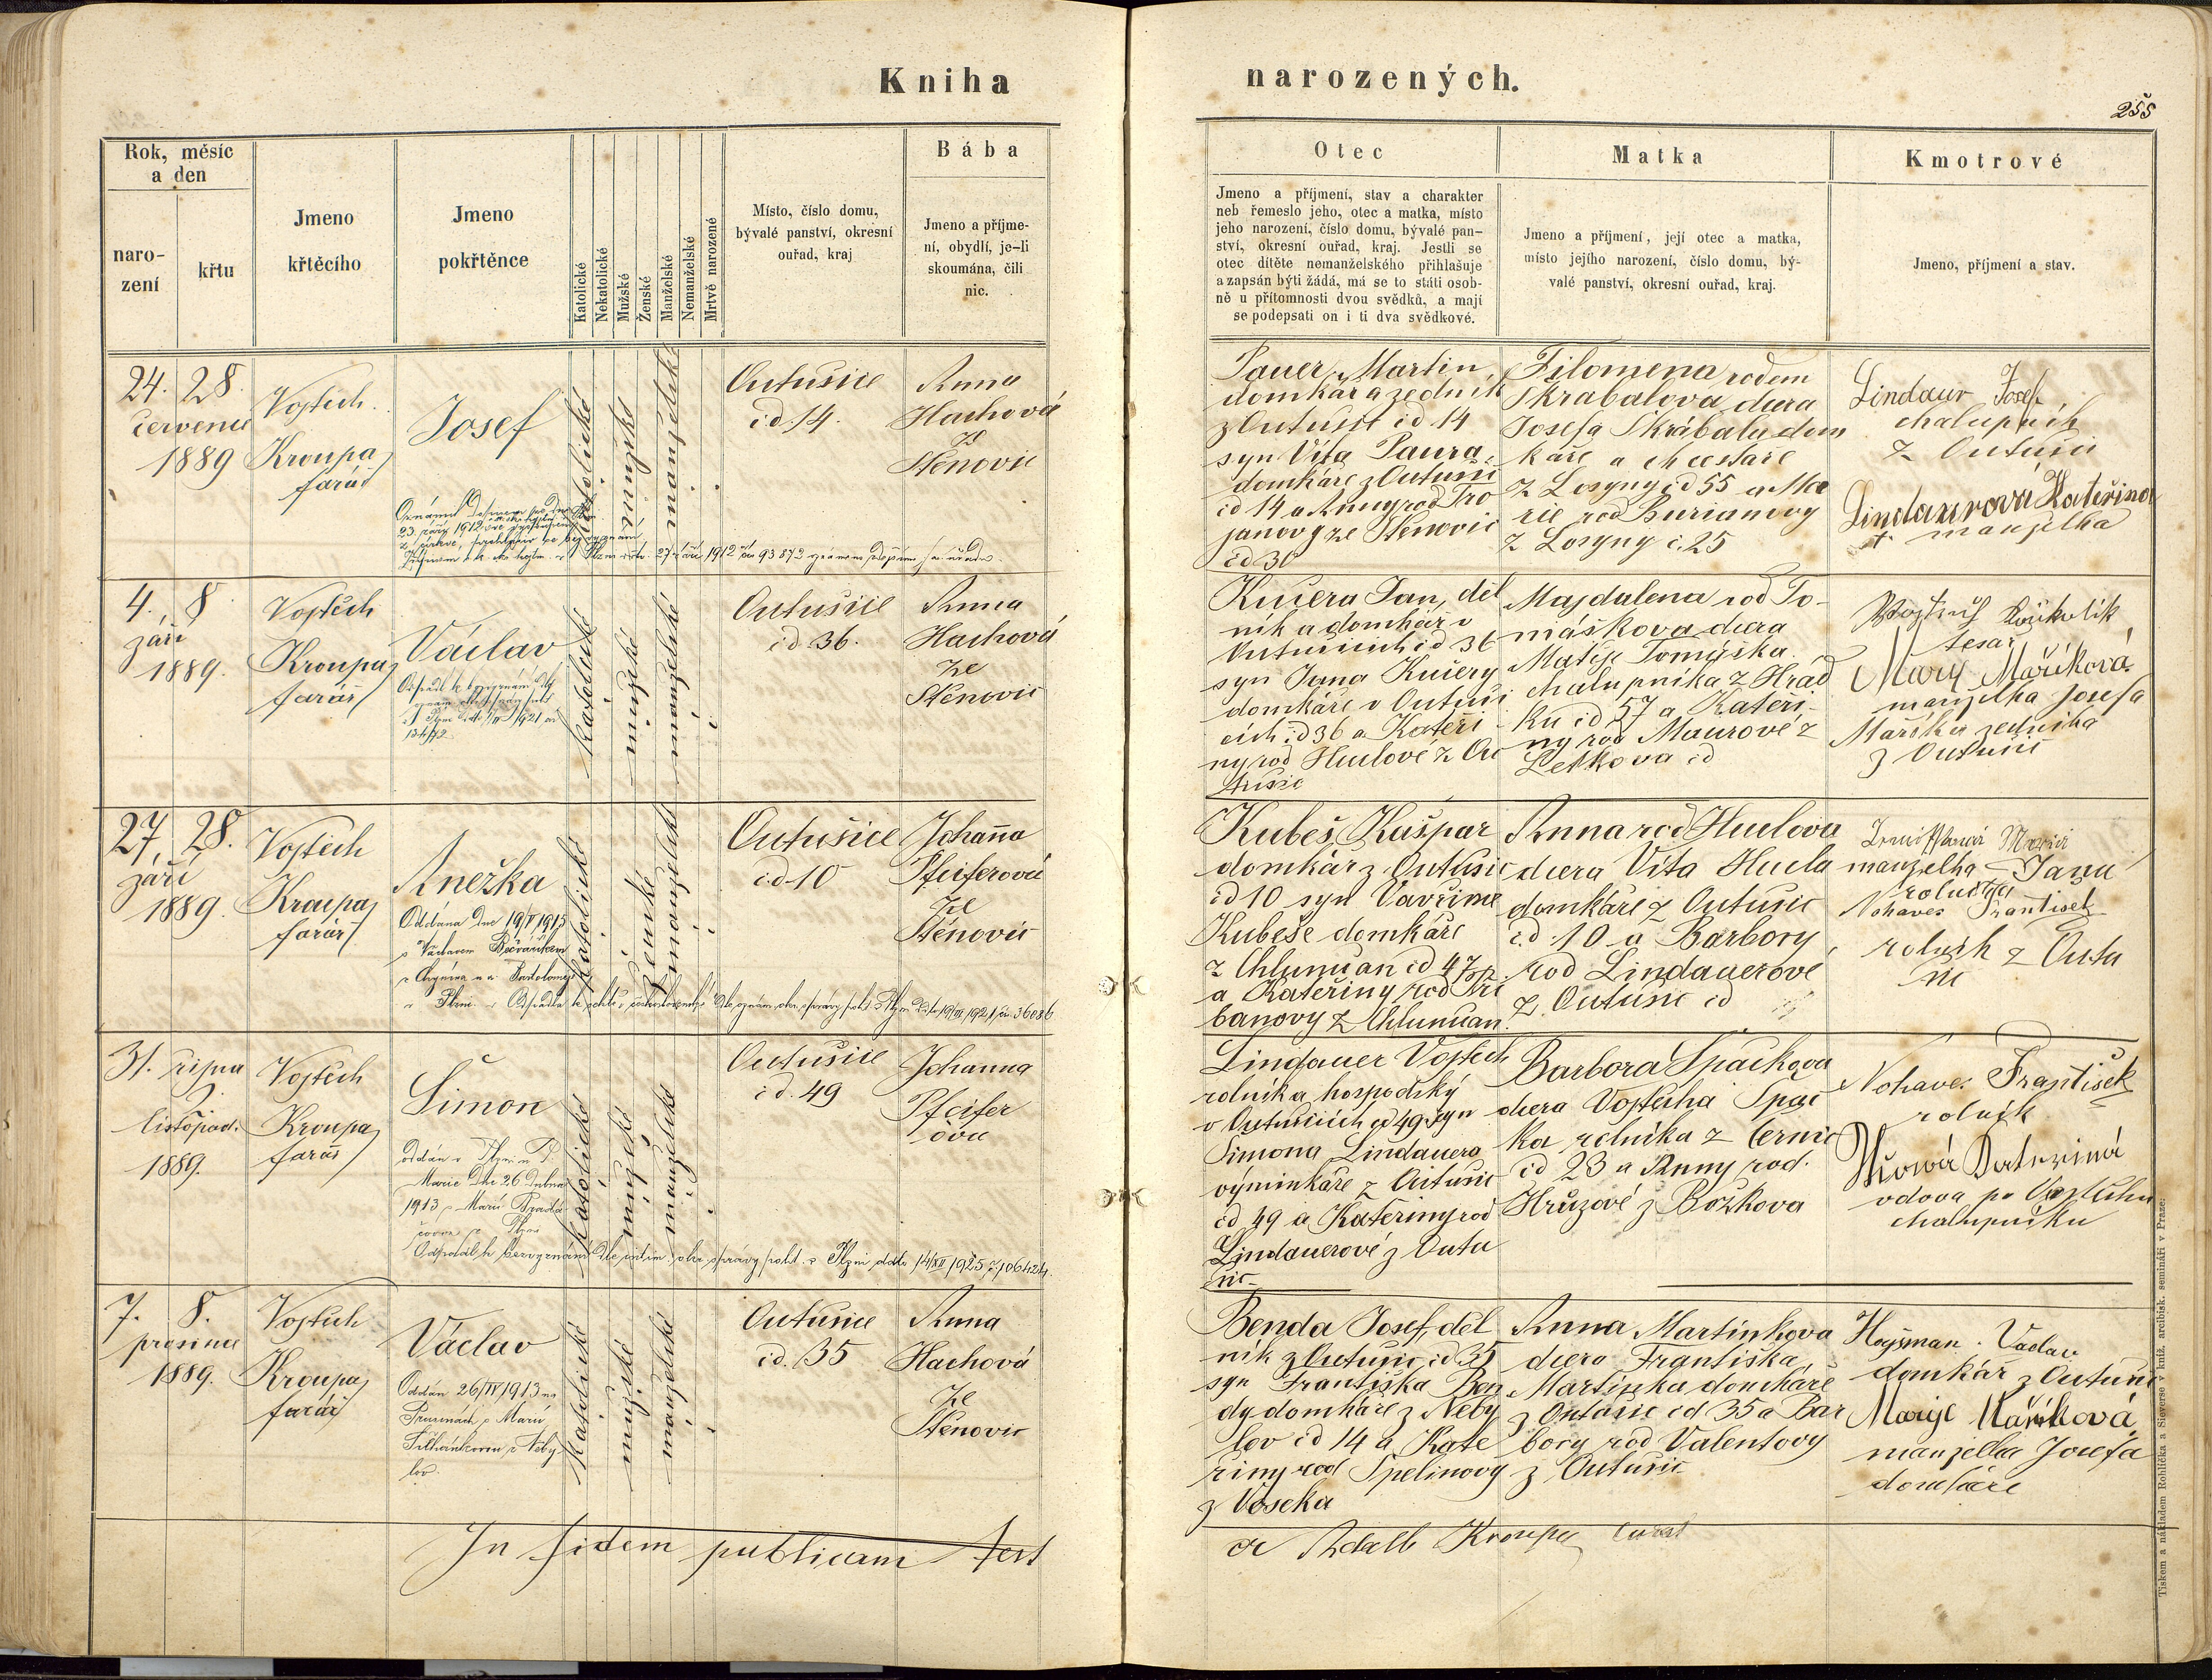 Kniha narozených.
255
Rok, měsíc
a den
naro-
zení
křtu
Jmeno
křtěcího
Jmeno
pokřtěnce
Katolické
Nekatolické
Mužské
Ženské
Manželské
Nemanželské
Mrtvě narozené
Místo, číslo domu,
bývalé panství, okresní
ouřad, kraj
Bába
Jmeno a příjme-
ní, obydlí, je-li
skoumána, čili
nic.
Otec
Jmeno a příjmení, stav a charakter
neb řemeslo jeho, otec a matka, místo
jeho narození, číslo domu, bývalé pan-
ství, okresní ouřad, kraj. Jestli se
otec dítěte nemanželského přihlašuje
a zapsán býti žádá, má se to státi osob-
ně u přítomnosti dvou svědků, a mají
se podepsati on i ti dva svědkové.
Matka
Jmeno a příjmení, její otec a matka,
místo jejího narození, číslo domu, bý-
valé panství, okresní ouřad, kraj.
Kmotrové
Jmeno, příjmení a stav.
24. 28.
července
1889
Vojtěch
Kroupa
farář
Josef
23. září 1912
27 září 1912 93872
katolické
mužské
manželské
Outušice
čd. 14.
Anna
Hachová
ze
Štěnovic
Pauer Martin,
domkář a zedník
z Outušic čd 14
syn Víta Paura,
domkáře z Outušic
čd 14 a Anny rod Tro
janovy ze Štěnovic
čd 30
Filomena rodem
Škrabalova dcera
Josefa Škrábala dom
káře a
z Losyny čd 55 a Ma
rie rod Burianovy
z Losyny č. 25
Lindaur Josef
chalupník
z Outušic
Lindaurová Kateřina
manželka
4. 8
září
1889.
Vojtěch
Kroupa
farář
Václav
katolické
mužské
manželské
Outušice
čd 36.
Anna
Hachová
ze
Štěnovic
Kučera Jan, děl
ník a domkář v
Outušicích čd 36
syn Jana Kučery
domkáře v Outuši
cích čd 36 a Kateři-
ny rod Huclové z Ou
tušic
Majdalena rod To-
máškova dcera
Matěje Tomáška
chalupníka z Hrád
ku čd 57 a Kateři-
ny rod Maurové z
Letkova čd
Vojtěch
tesař
Mary Maříková
manželka Josefa
Maříka zedníka
z Outušic
27. 28.
září
1889.
Vojtěch
Kroupa
farář
Anežka
Oddána dne 19/V 1915
s Václavem
36086
katolické
ženské
manželské
Outušice
čd. 10
Johanna
Pfeiferová
ze
Štěnovic
Kubeš Kašpar
domkář z Outušic
čd 10 syn Vavřince
Kubeše domkáře
z Chlumčan čd 47
a Kateřiny rod Tri
banovy z Chlumčan.
Anna rod Huclova
dcera Víta Hucla
domkáře z Outušic
čd. 10 a Barbory
rod Lindauerové
z Outušic čd
manželka Jana
rolníka
Nohavec František
rolník z Outu
šic
31. října
listopad.
1889.
Vojtěch
Kroupa
farář
Šimon
oddán v Plzni u P.
Marie dne 26. dubna
1913 s Marií
Odpadl k bezvyznání dle oznám. okr. správy polit. v Plzni ddto 14/XII 1925 č. 106424.
katolické
mužské
manželské
Outušice
čd. 49
Johanna
Pfeifer
ova
Lindauer Vojtěch
rolník a hospodský
v Outušicích čd 49 syn
Šimona Lindauera
výminkáře z Outušic
čd 49 a Kateřiny rod
Lindauerové z Outu
šic
Barbora Špačkova
dcera Vojtěcha Špač
ka rolníka z Černic
čd 23 a Anny rod.
Hrůzové z Božkova
Nohavec František
rolník
vdova po Vojtěchu
chalupníku
7. 8.
prosince
1889.
Vojtěch
Kroupa
farář
Václav
Oddán 26/IV 1913 na
Prusinách s Marií
katolické
mužské
manželské
Outušice
čd. 35
Anna
Hachová
ze
Štěnovic
Benda Josef, děl
ník z Outušic čd 35
syn Františka Ben
dy domkáře z Neby
lov čd 14 a Kate
řiny rod Špelinovy
z Voseka
Anna Martínkova
dcera Františka
Martínka domkáře
z Outušic čd 35 a Bar
bory rod Valentovy
z Outušic
Hajšman Václav
domkář z Outušic
Marije Maříková
manželka Josefa
domkáře
In fidem publicam
Adalb Kroupa
Tiskem a nákladem Rohlíčka a Sieverse v kníž. arcibisk. semináři v Praze.